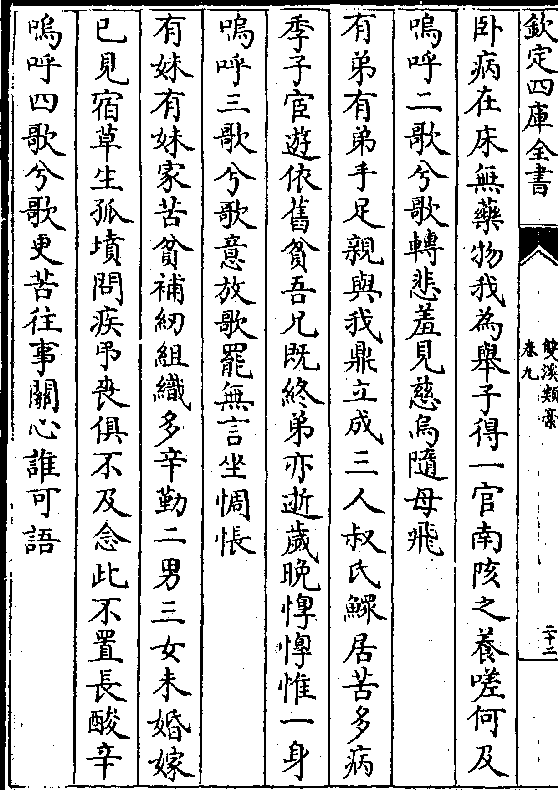 欽定四庫全書
雙溪類稾
卷九
二十二
卧病在床無藥物我為舉子得一官南陔之養嗟何及
嗚呼二歌兮歌轉悲羞見慈烏隨母飛
有弟有弟手足親與我鼎立成三人叔氏鰥居苦多病
季子宦遊依舊貧吾兄既終弟亦逝歲晚惸惸惟一身
嗚呼三歌兮歌意放歌罷無言坐惆悵
有妹有妹家苦貧補紉組織多辛勤二男三女未婚嫁
已見宿草生孤墳問疾弔喪俱不及念此不置長酸辛
嗚呼四歌兮歌更苦往事關心誰可語